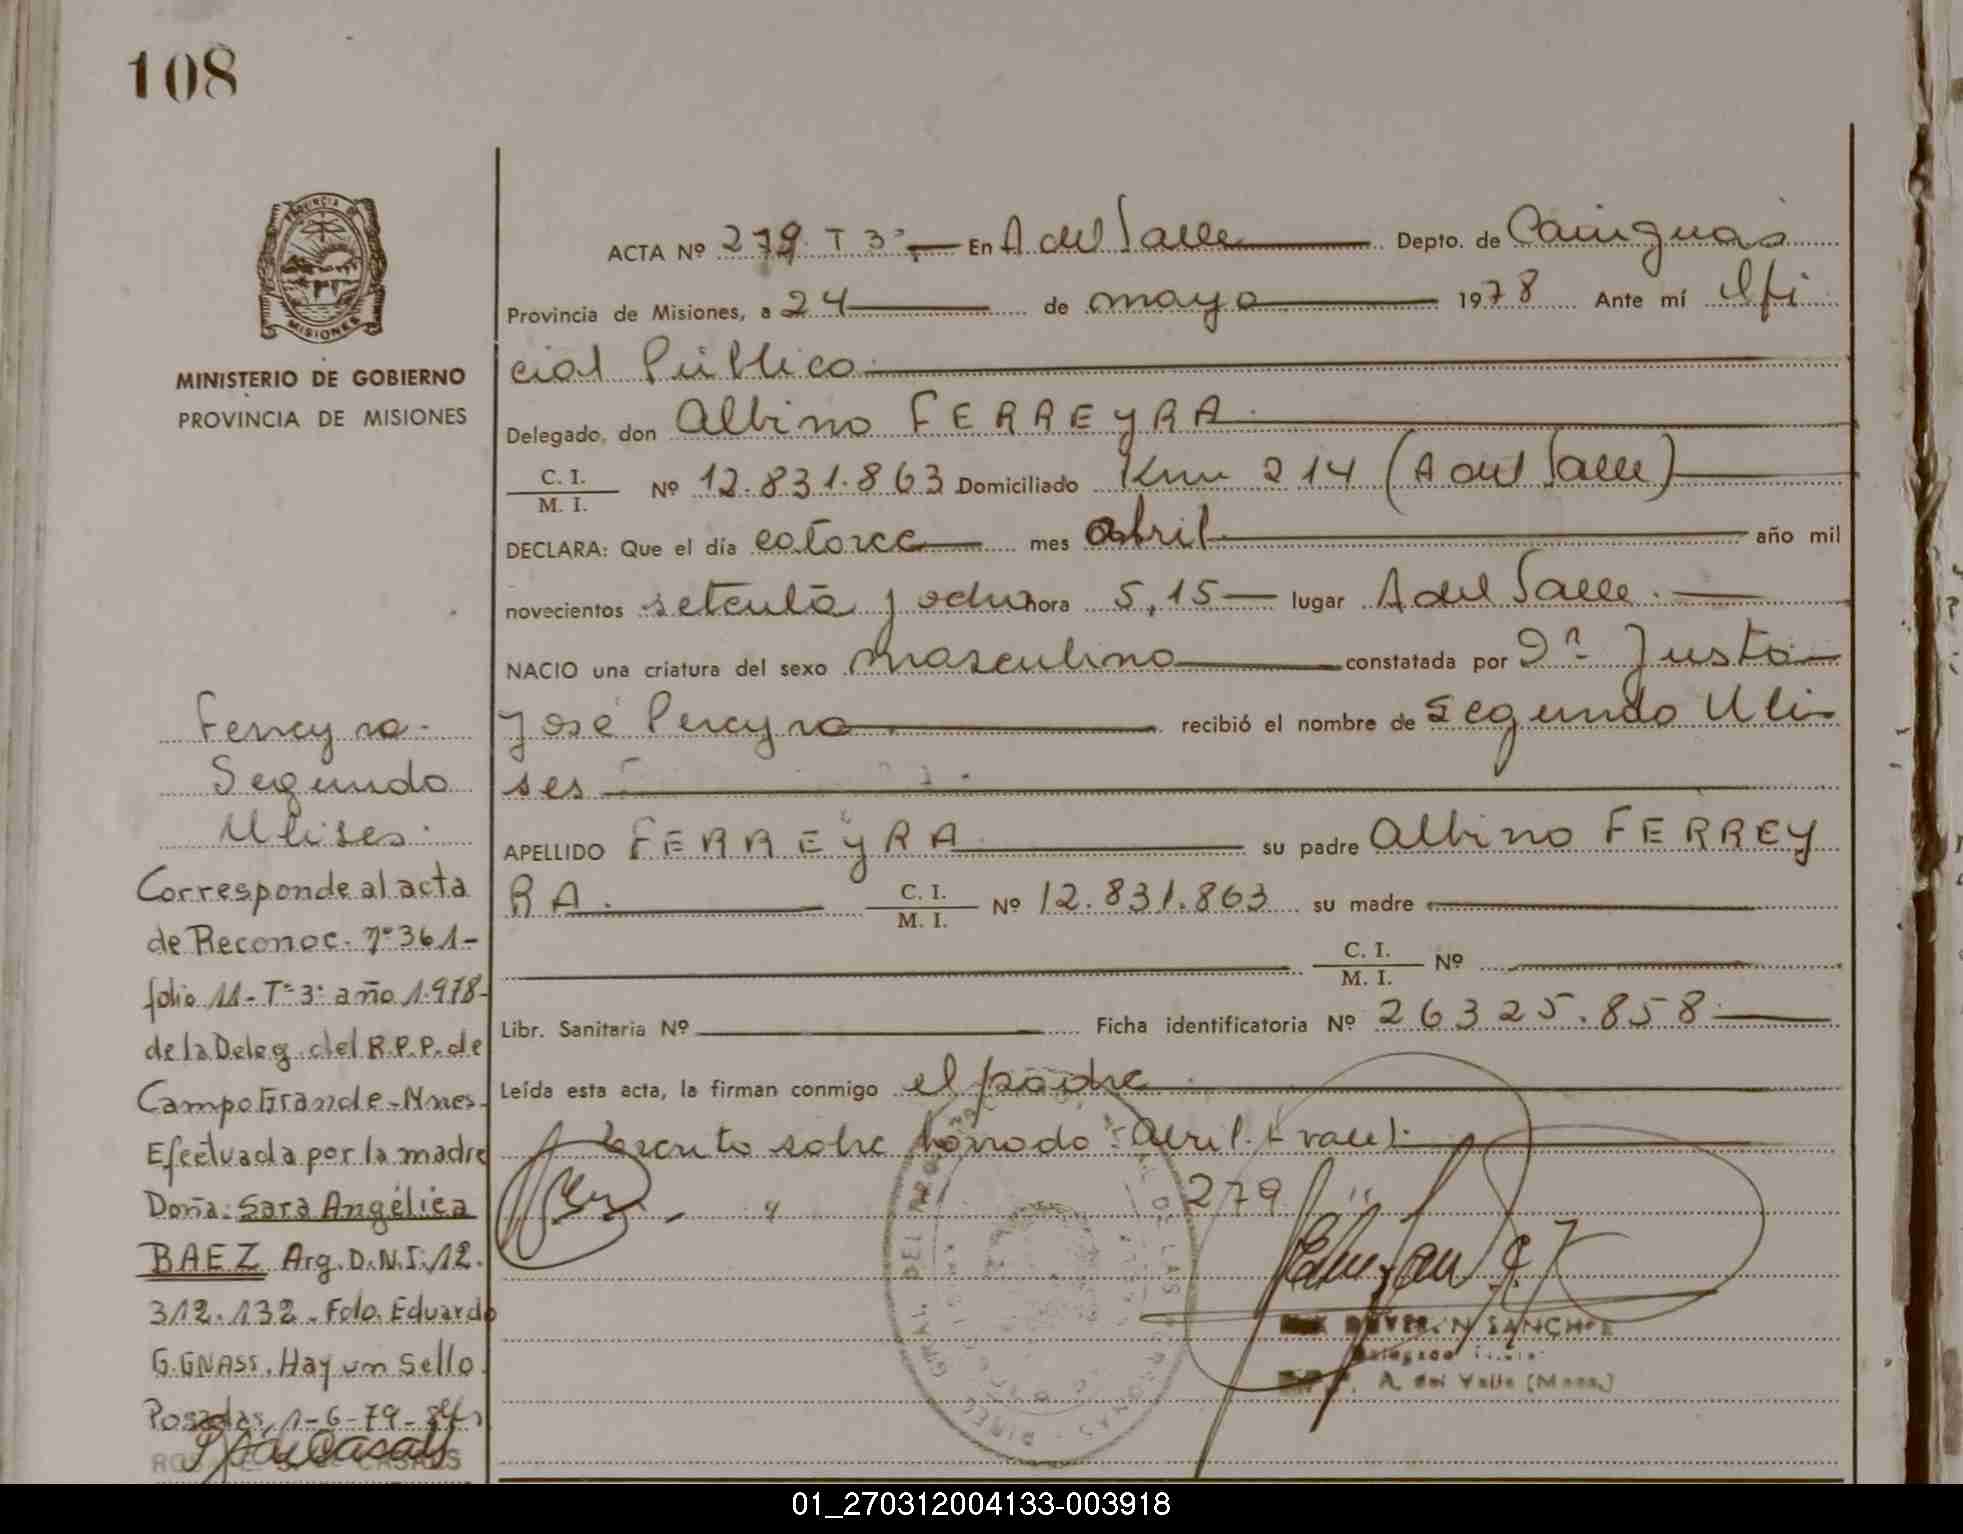 108
PROVINCIA DE
MISIONES
MINISTERIO DE GOBIERNO
PROVINCIA DE MISIONES
ACTA Nº 279. T 3º En A del Valle Depto. de Cainguas
Provincia de Misiones, a 24 de mayo 1978 Ante mí Ofi
cial Público
Delegado, don Albino FERREYRA
C. I.
M. I.
Nº 12.831.863 Domiciliado Km 214 (A del Valle)
DECLARA: Que el día catorce mes abril año mil
novecientos setenta y ocho hora 5,15 lugar A del Valle.
NACIO una criatura del sexo masculino constatada por Dn Justo
José Pereyra recibió el nombre de Segundo Uli-
ses
APELLIDO FERREYRA su padre Albino FERREY
RA. C. I.
M. I.
Nº 12.831.863 su madre
C. I.
M. I.
Nº
Libr. Sanitaria Nº Ficha identificatoria Nº 26325.858
Leída esta acta, la firman conmigo el padre
Escrito sobre borrado: Abril. (vale).
279
SANCHEZ
A. del Valle (Mnes.)
Ferreyra.
Segundo
Ulises.
Corresponde al acta
de Reconoc. nº 361-
folio 11-Tº 3º año 1.978-
de la Deleg. del R.P.P. de
Campo Grande-Mnes.
Efectuada por la madre
Doña: Sara Angélica
BAEZ Arg. D.N.I. 12.
312.132.-Fdo. Eduardo
G. GNASS. Hay un sello.
Posadas, 1-6-79-
01_270312004133-003918